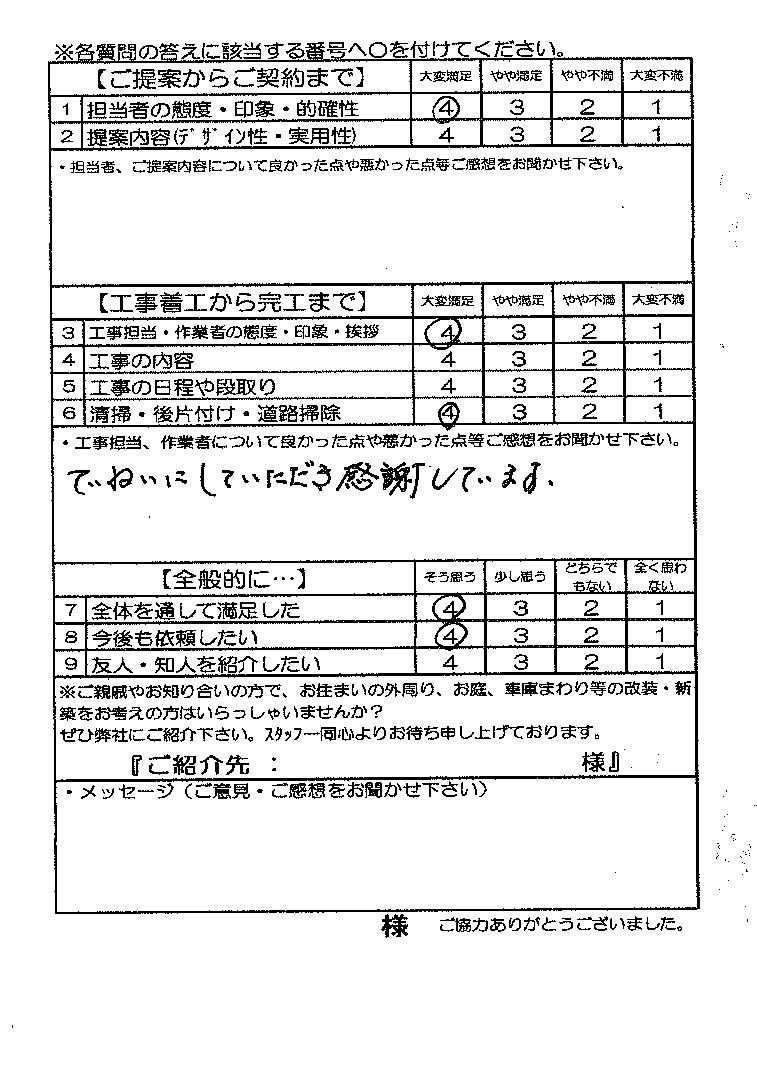 ※各質問の答えに該当する番号へ〇を付けてください。
【ご提案からご契約まで】 大変満足 やや満足 やや不満 大変不満
1 担当者の態度・印象・的確性 4 3 2 1
2 提案内容(ﾃﾞｻﾞｲﾝ性・実用性) 4 3 2 1
・担当者、ご提案内容について良かった点や悪かった点等ご感想をお聞かせ下さい。
【工事着工から完工まで】 大変満足 やや満足 やや不満 大変不満
3 工事担当・作業者の態度・印象・挨拶 4 3 2 1
4 工事の内容 4 3 2 1
5 工事の日程や段取り 4 3 2 1
6 清掃・後片付け・道路掃除 4 3 2 1
・工事担当、作業者について良かった点や悪かった点等ご感想をお聞かせ下さい。
ていねいにしていただき感謝しています、
【全般的に…】 そう思う 少し思う どちらでもない 全く思わない
7 全体を通して満足した 4 3 2 1
8 今後も依頼したい 4 3 2 1
9 友人・知人を紹介したい 4 3 2 1
※ご親戚やお知り合いの方で、お住まいの外周り、お庭、車庫まわり等の改装・新
築をお考えの方はいらっしゃいませんか？
ぜひ弊社にご紹介下さい。ｽﾀｯﾌ一同心よりお待ち申し上げております。
『ご紹介先： 様』
・メッセージ（ご意見・ご感想をお聞かせ下さい）
様 ご協力ありがとうございました。